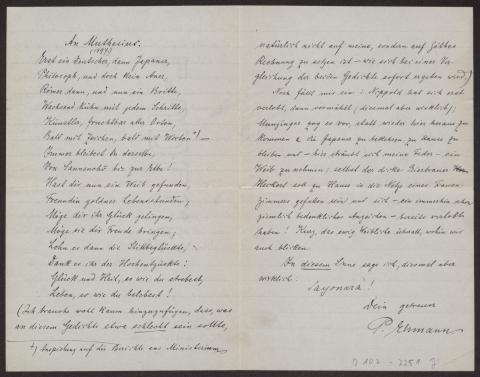 An Muthesius.
(1897)
Erst ein deutscher, dann Japaner,
Philosoph, und doch kein Aner,
Römer dann, und nun ein Britte,
Wachsend kühn mit jedem Schritte,
Künstler, Praktikus aller Orten,
Bald mit Zeichen, bald mit Worten +) —
Immer bleibest Du derselbe,
Von Sansouci bis zur Elbe!
Hast dir nun ein Weib gefunden,
Freundin goldner Lebensstunden;
Möge dir ihr Glück gelingen,
Möge sie dir Freude bringen;
Lohn es dann die Stillbeglückte,
Dank es ihr der Hochentzückte:
Glück und Heil, es wie du strebest,
Leben, es wie du belebest!
(Ich brauche wohl kaum hinzuzufügen, dass, was
an diesem Gedichte etwa schlecht sein sollte,
+) Anspielung auf die Berichte ans Ministerium
natürlich nicht auf meine, sondern auf Göthes
Rechnung zu setzen ist – wie sich bei einer Ver-
gleichung der beiden Gedichte sofort ergeben wird.)
Noch fällt mir ein: Nippold hat sich erst
verlobt, dann vermählt, diesmal aber wirklich;
Munzinger zog es vor, statt wieder hier heraus zu
kommen & die Japaner zu bekehren, zu Hause zu
bleiben und – hier sträubt sich meine Feder – ein
Weib zu nehmen; selbst der dicke
soll zu Hause in die Netze eines Frauen-
zimmers gefallen sein und sich – ein immerhin schon
ziemlich bedenkliches Anzeichen – bereits verlobt
haben! Kurz, das ewig Weibliche schnall, wohin wir
auch blicken.
In diesem Sinne sage ich, diesmal aber
wirklich:
Sayonara!
Dein getreuer
P. Ehmann
D 102 - 2251